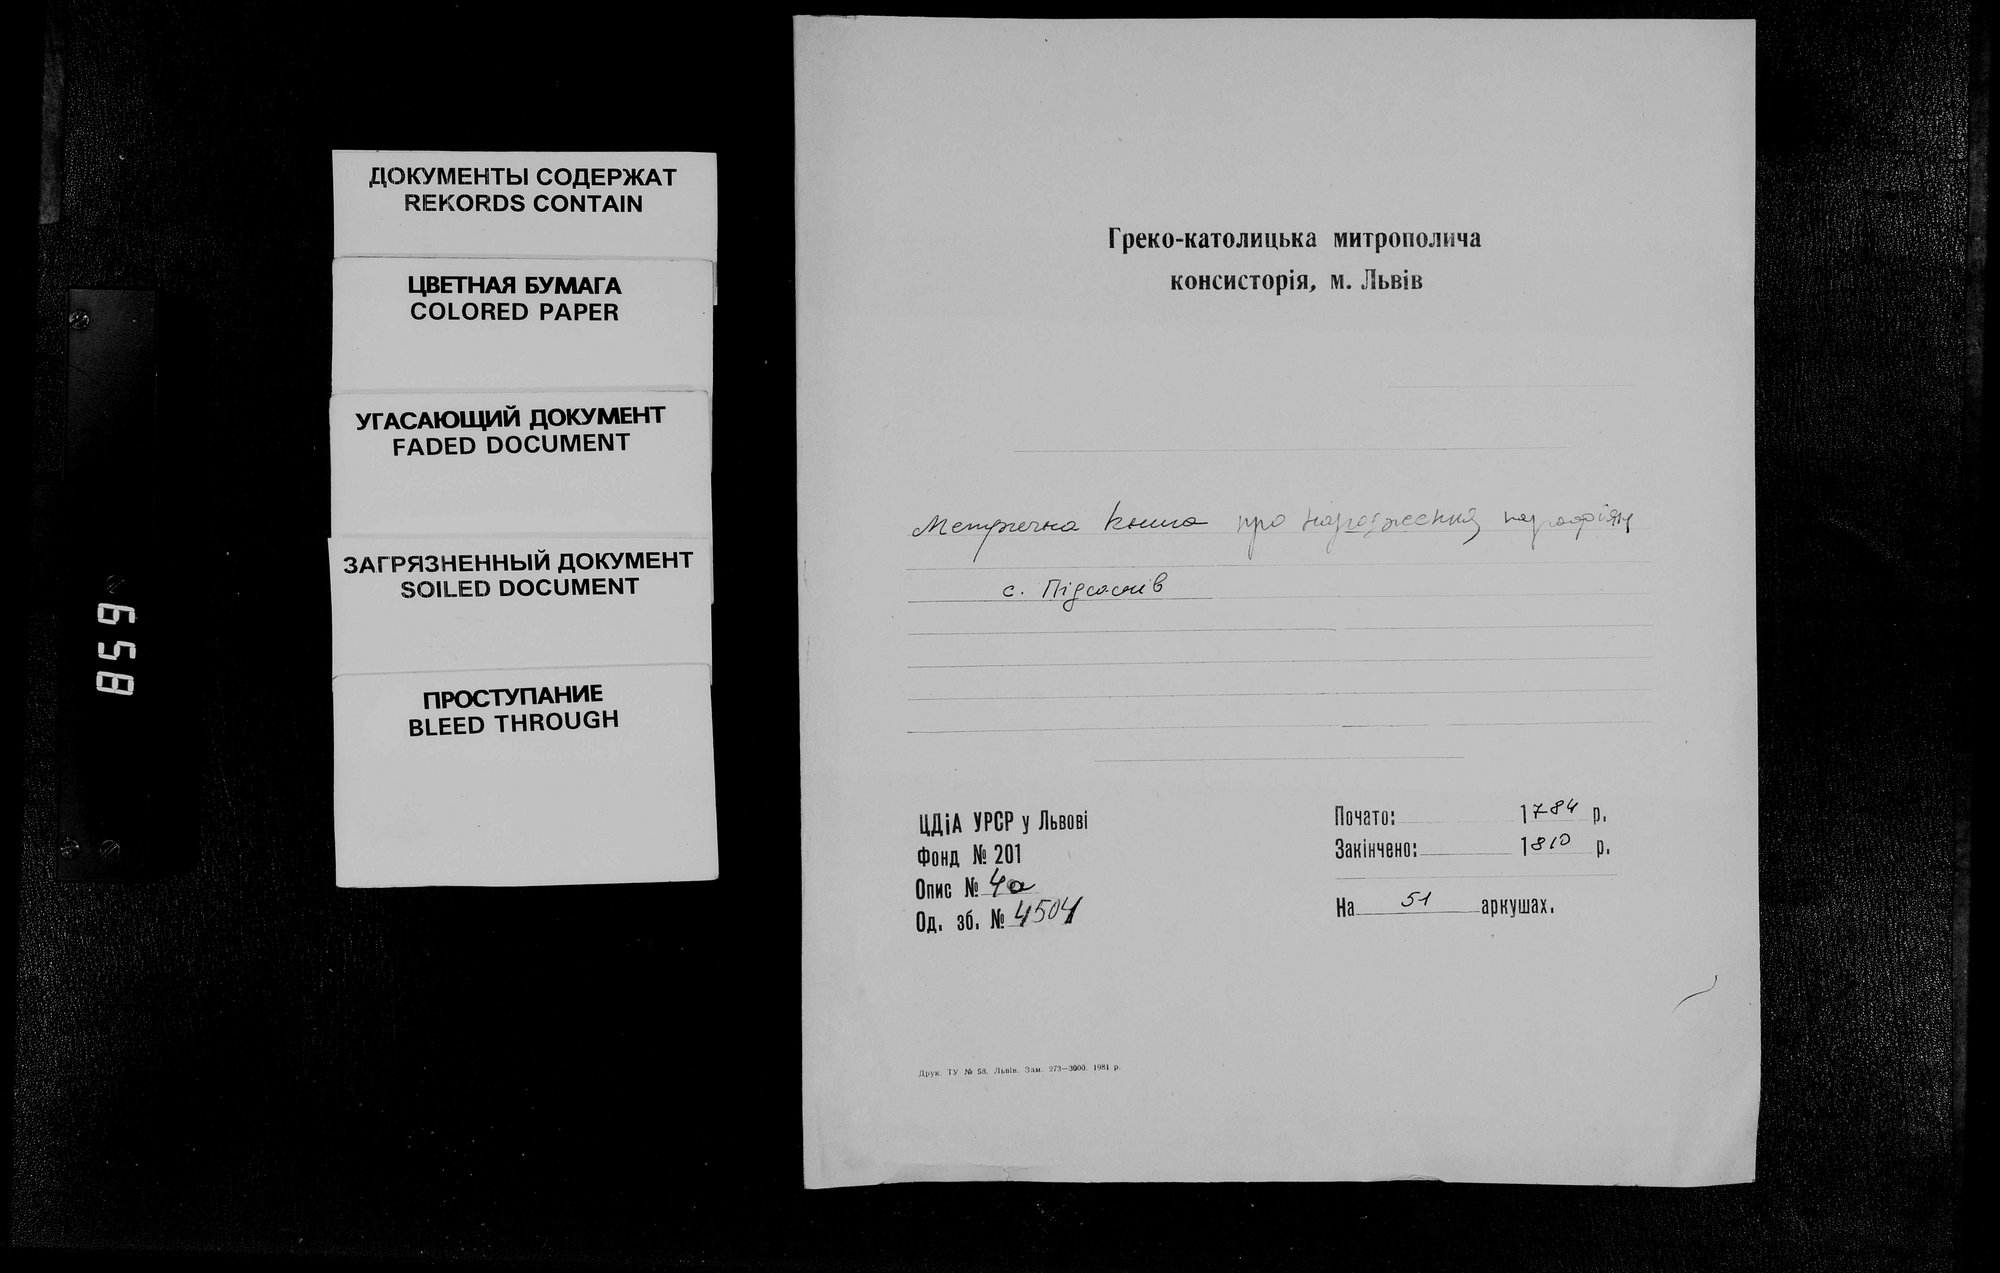 ДОКУМЕНТЫ СОДЕРЖАТ
REKORDS CONTAIN
ЦВЕТНАЯ БУМАГА
COLORED PAPER
УГАСАЮЩИЙ ДОКУМЕНТ
FADED DOCUMENT
ЗАГРЯЗНЕННЫЙ ДОКУМЕНТ
SOILED DOCUMENT
ПРОСТУПАНИЕ
BLEED THROUGH
859
Греко-католицька митрополича
консисторія, м. Львів
Метрична книга про народження парафіян
с.
ЦДіА УРСР у Львові
Фонд № 201
Опис № 4а
Од. зб. № 4504
Почато: 1784 р.
Закінчено: 1810 р.
На 51 аркушах.
Друк. ТУ № 53. Львів. Зам. 273—3000. 1981 р.